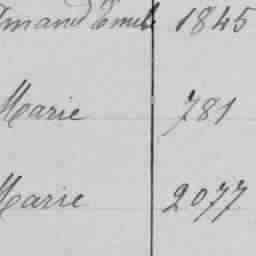 Emile 1845
Marie 781
Marie 2077